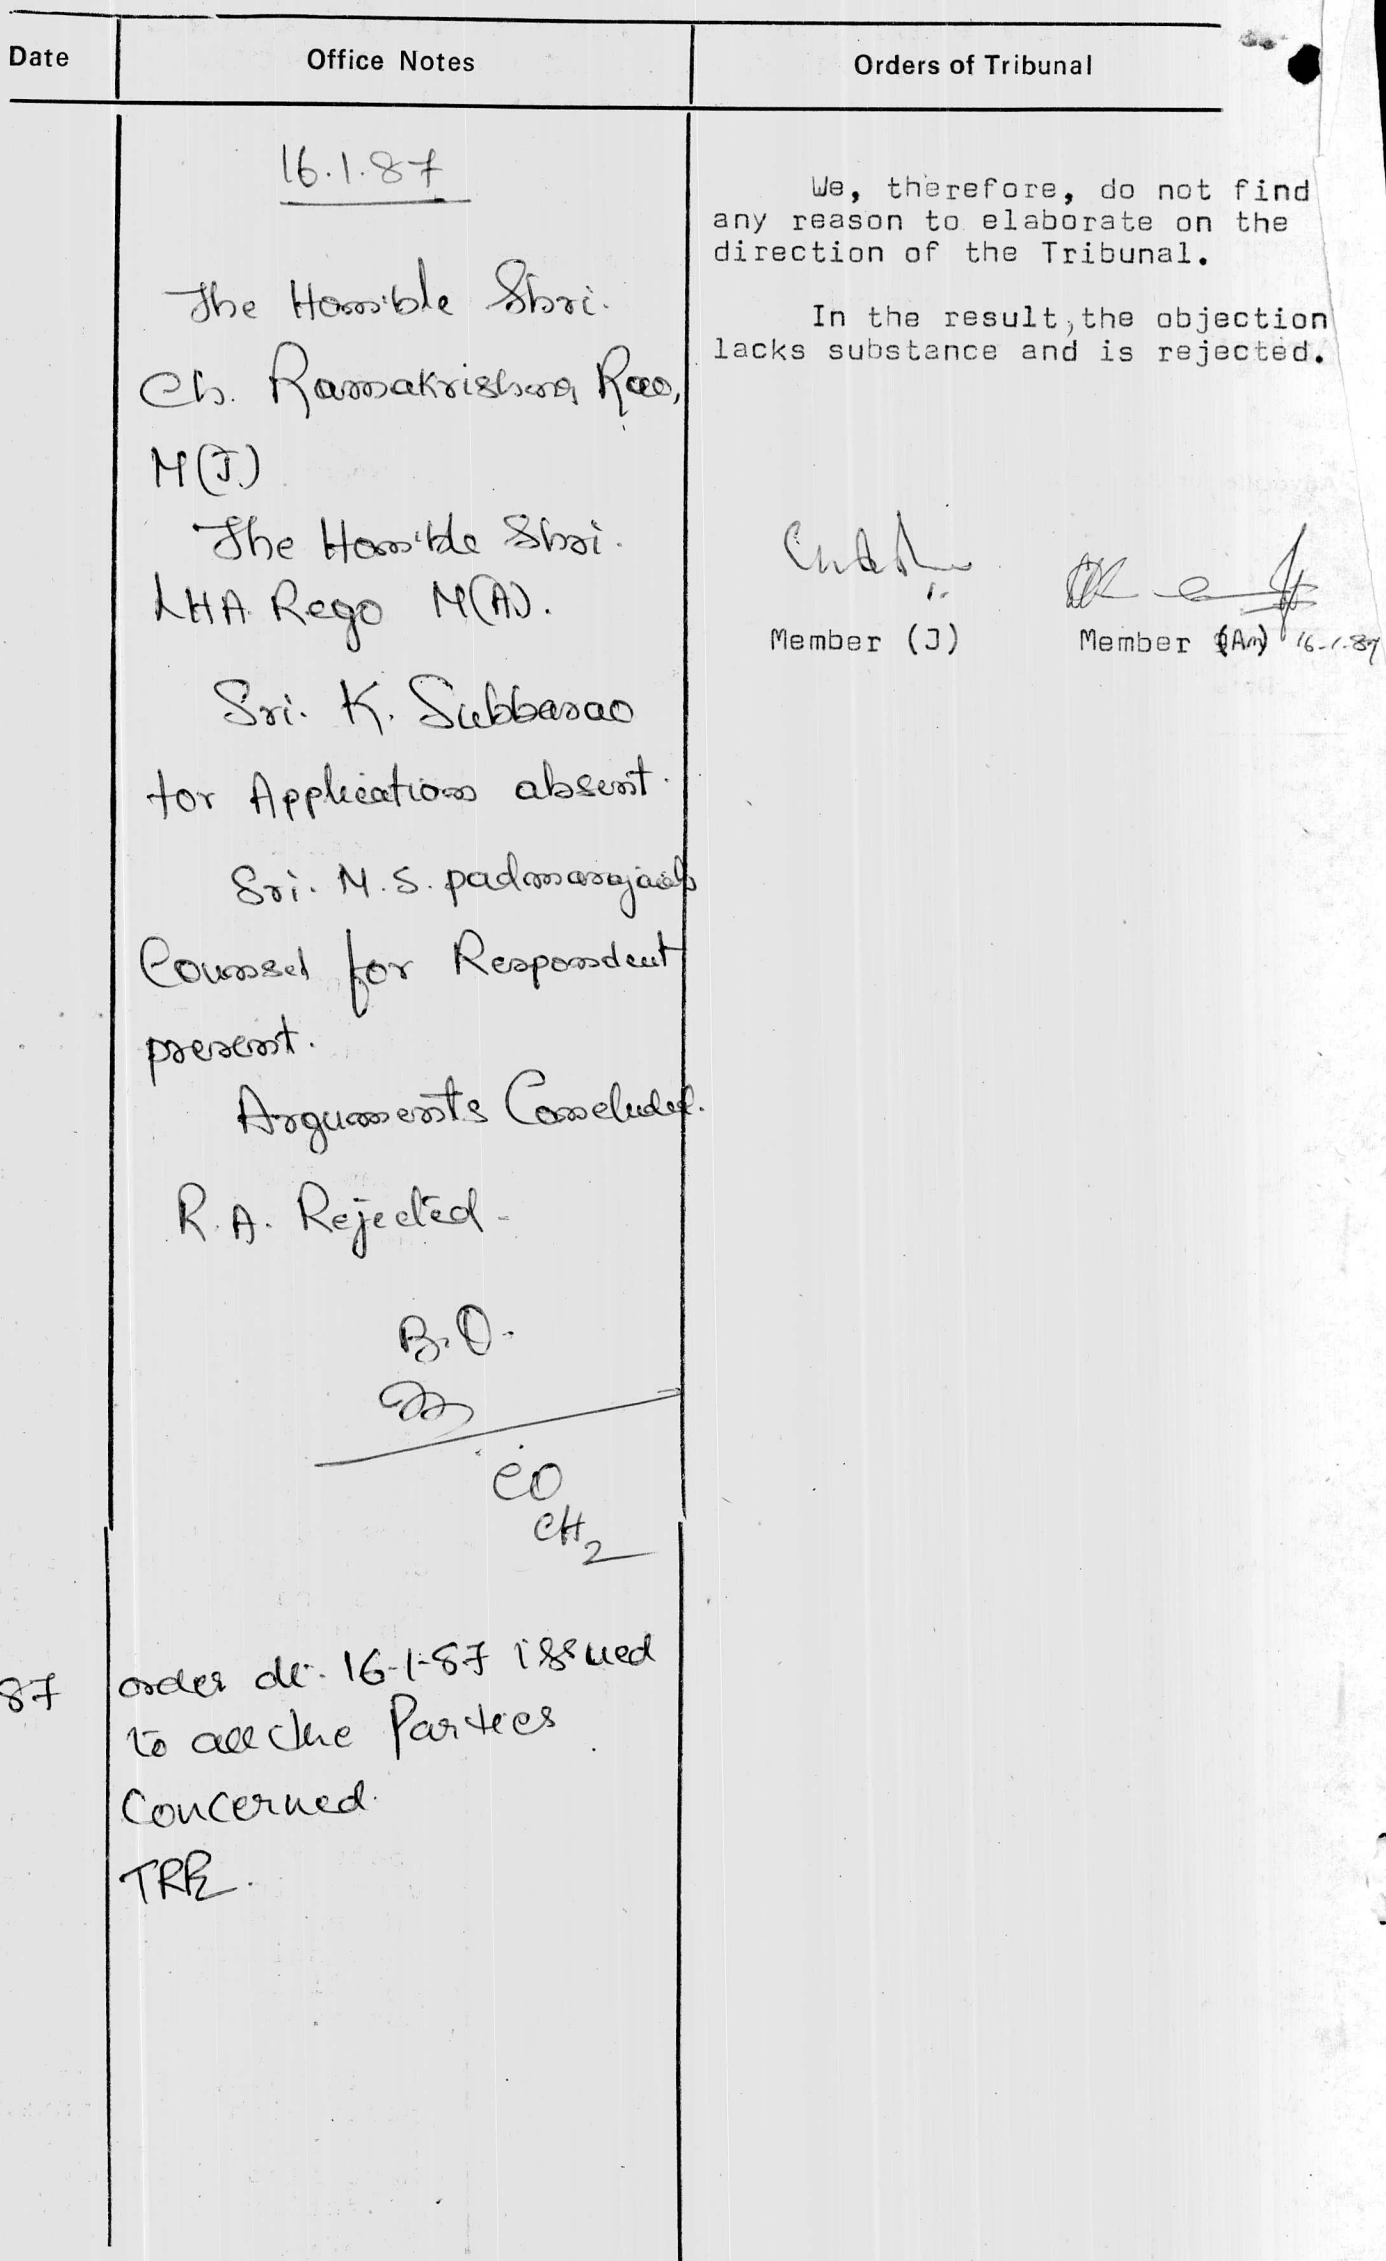 Date
Office Notes
Orders of Tribunal
16.1.87
The Hon'ble Shri.
Ch. Ramakrishna Rao,
M(J.)
The Hon'ble Shri.
LHA. Rego M(A).
Sri. K. Subbarao
for Application absent.
Sri. M.S. padmarajaiah
Counsel for Respondent
present.
Arguments Concluded.
R.A. Rejected.
B.O.
CO
CH2
87
order dt. 16-1-87 issued
to all the Parties
Concerned.
We, therefore, do not find
any reason to elaborate on the
direction of the Tribunal.
In the result, the objection
lacks substance and is rejected.
Member (J)
Member (Am) 16-1-87